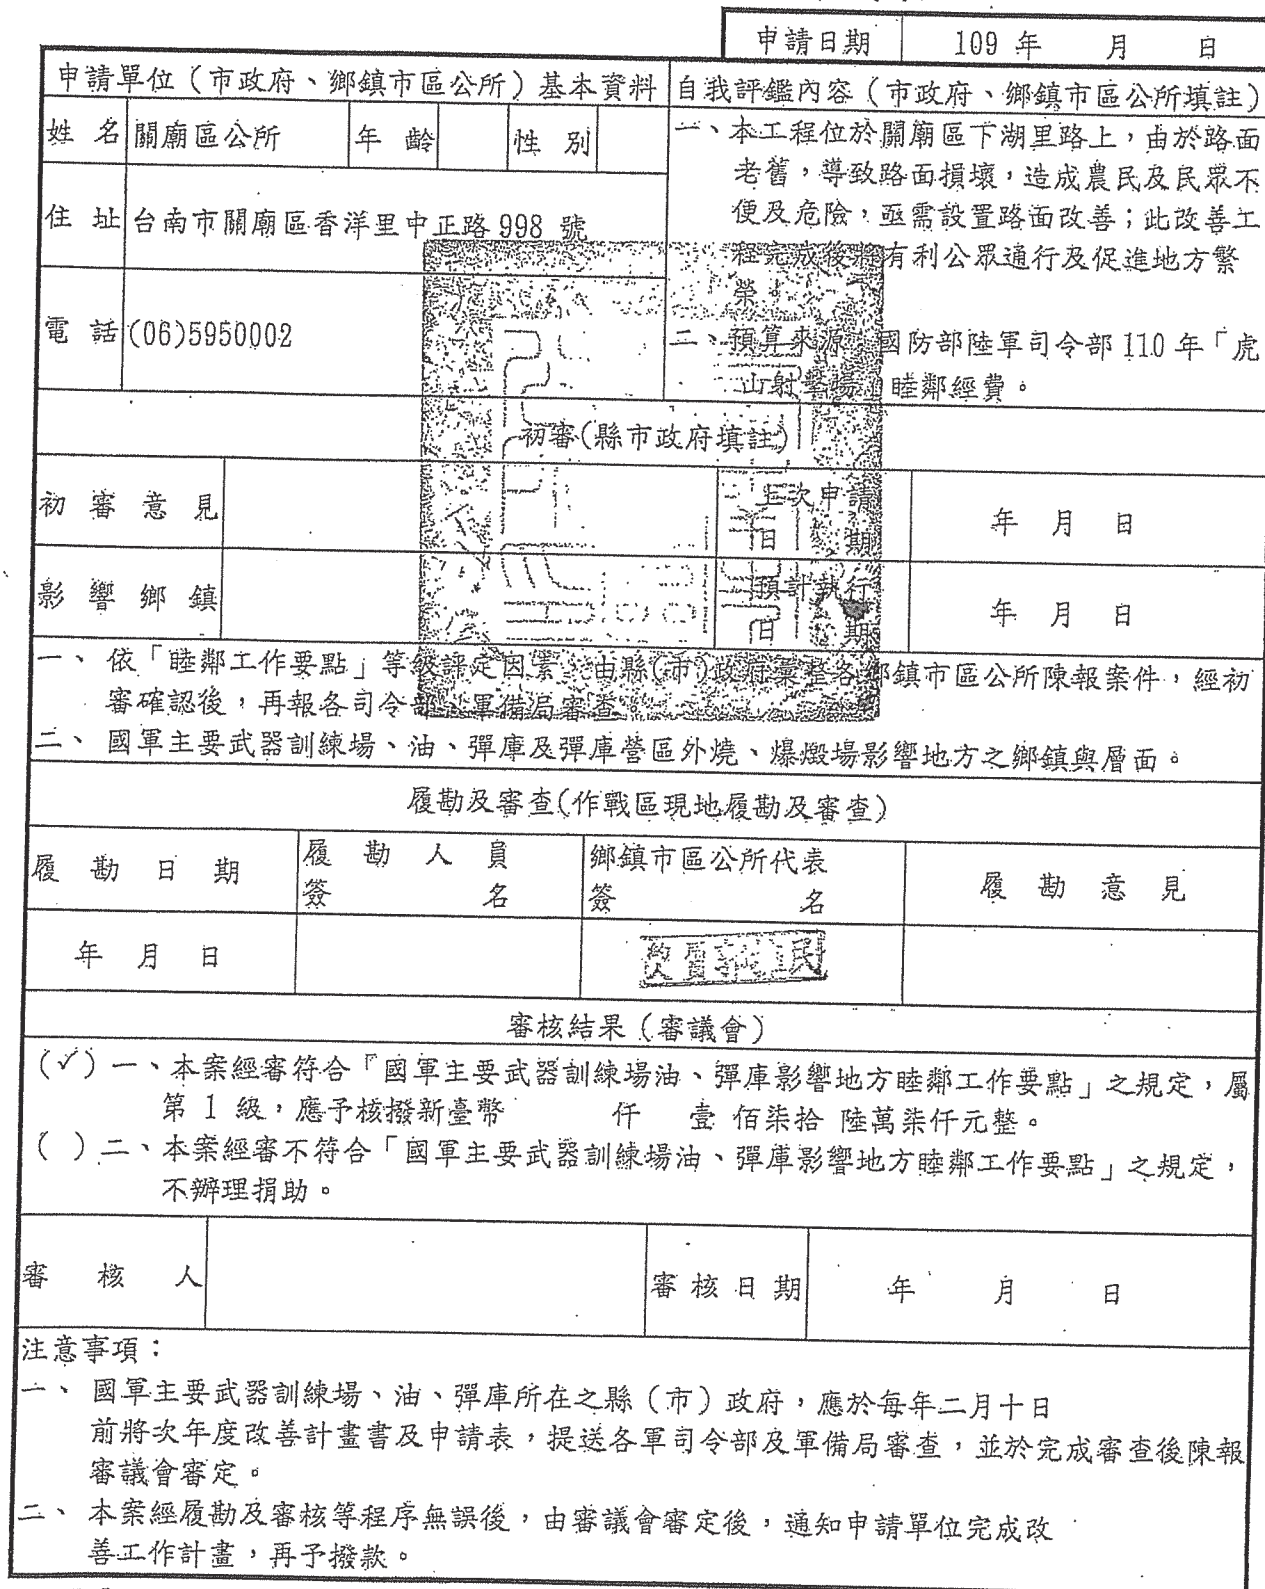 申請日期 109 年 月 日
申請單位（市政府、鄉鎮市區公所）基本資料
自我評鑑內容（市政府、鄉鎮市區公所填註）
姓 名 關廟區公所 年 齡 性 別
住 址 台南市關廟區香洋里中正路 998 號
電 話 (06)5950002
一、本工程位於關廟區下湖里路上，由於路面
老舊，導致路面損壞，造成農民及民眾不
便及危險，亟需設置路面改善；此改善工
程完成後將有利公眾通行及促進地方繁
榮。
二、預算來源：國防部陸軍司令部 110 年「虎
山射擊場」睦鄰經費。
初審(縣市政府填註)
初 審 意 見
上次申請
日 期
年 月 日
影 響 鄉 鎮
預計執行
日 期
年 月 日
一、 依「睦鄰工作要點」等級評定因素，由縣(市)政府彙整各鄉鎮市區公所陳報案件，經初
審確認後，再報各司令部、軍備局審查。
二、 國軍主要武器訓練場、油、彈庫及彈庫營區外燒、爆燬場影響地方之鄉鎮與層面。
履勘及審查(作戰區現地履勘及審查)
履 勘 日 期
履 勘 人 員
簽 名
鄉鎮市區公所代表
簽 名
履 勘 意 見
年 月 日
審核結果（審議會）
(✓) 一、本案經審符合「國軍主要武器訓練場油、彈庫影響地方睦鄰工作要點」之規定，屬
第 1 級，應予核撥新臺幣 仟 壹 佰柒拾 陸萬柒仟元整。
( ) 二、本案經審不符合「國軍主要武器訓練場油、彈庫影響地方睦鄰工作要點」之規定，
不辦理捐助。
審 核 人
審 核 日 期
年 月 日
注意事項：
一、 國軍主要武器訓練場、油、彈庫所在之縣（市）政府，應於每年二月十日
前將次年度改善計畫書及申請表，提送各軍司令部及軍備局審查，並於完成審查後陳報
審議會審定。
二、 本案經履勘及審核等程序無誤後，由審議會審定後，通知申請單位完成改
善工作計畫，再予撥款。